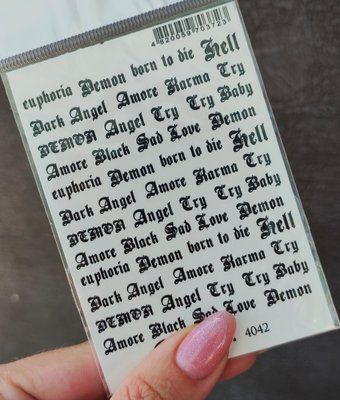 4820059703723
euphoria Demon born to die Hell
Dark Angel Amore Karma Cry
DEMON Angel Cry Cry Baby
Amore Black Sad Love Demon
euphoria Demon born to die Hell
Dark Angel Amore Karma Cry
DEMON Angel Cry Cry Baby
Amore Black Sad Love Demon
euphoria Demon born to die Hell
Dark Angel Amore Karma Cry
DEMON Angel Cry Cry Baby
Amore Black Sad Love Demon
4042